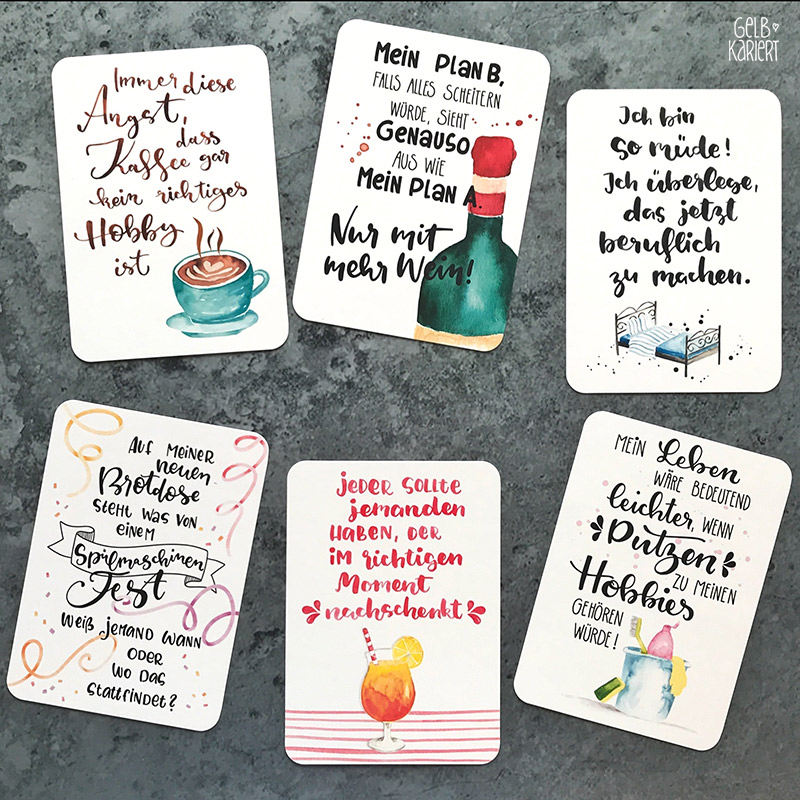 GELB
KARIERT
Immer diese
Angst,
dass
Kaffee gar
kein richtiges
Hobby
ist
Mein Plan B,
falls alles scheitern
würde, sieht
genauso
aus wie
mein Plan A.
Nur mit
mehr Wein!
Ich bin
so müde!
Ich überlege,
das jetzt
beruflich
zu machen.
Auf meiner
neuen
Brotdose
steht was von
einem
Spülmaschinen
Fest
Weiß jemand wann
oder
wo das
stattfindet?
Jeder sollte
jemanden
haben, der
im richtigen
Moment
nachschenkt
Mein Leben
wäre bedeutend
leichter, wenn
Putzen
zu meinen
Hobbies
gehören
würde!